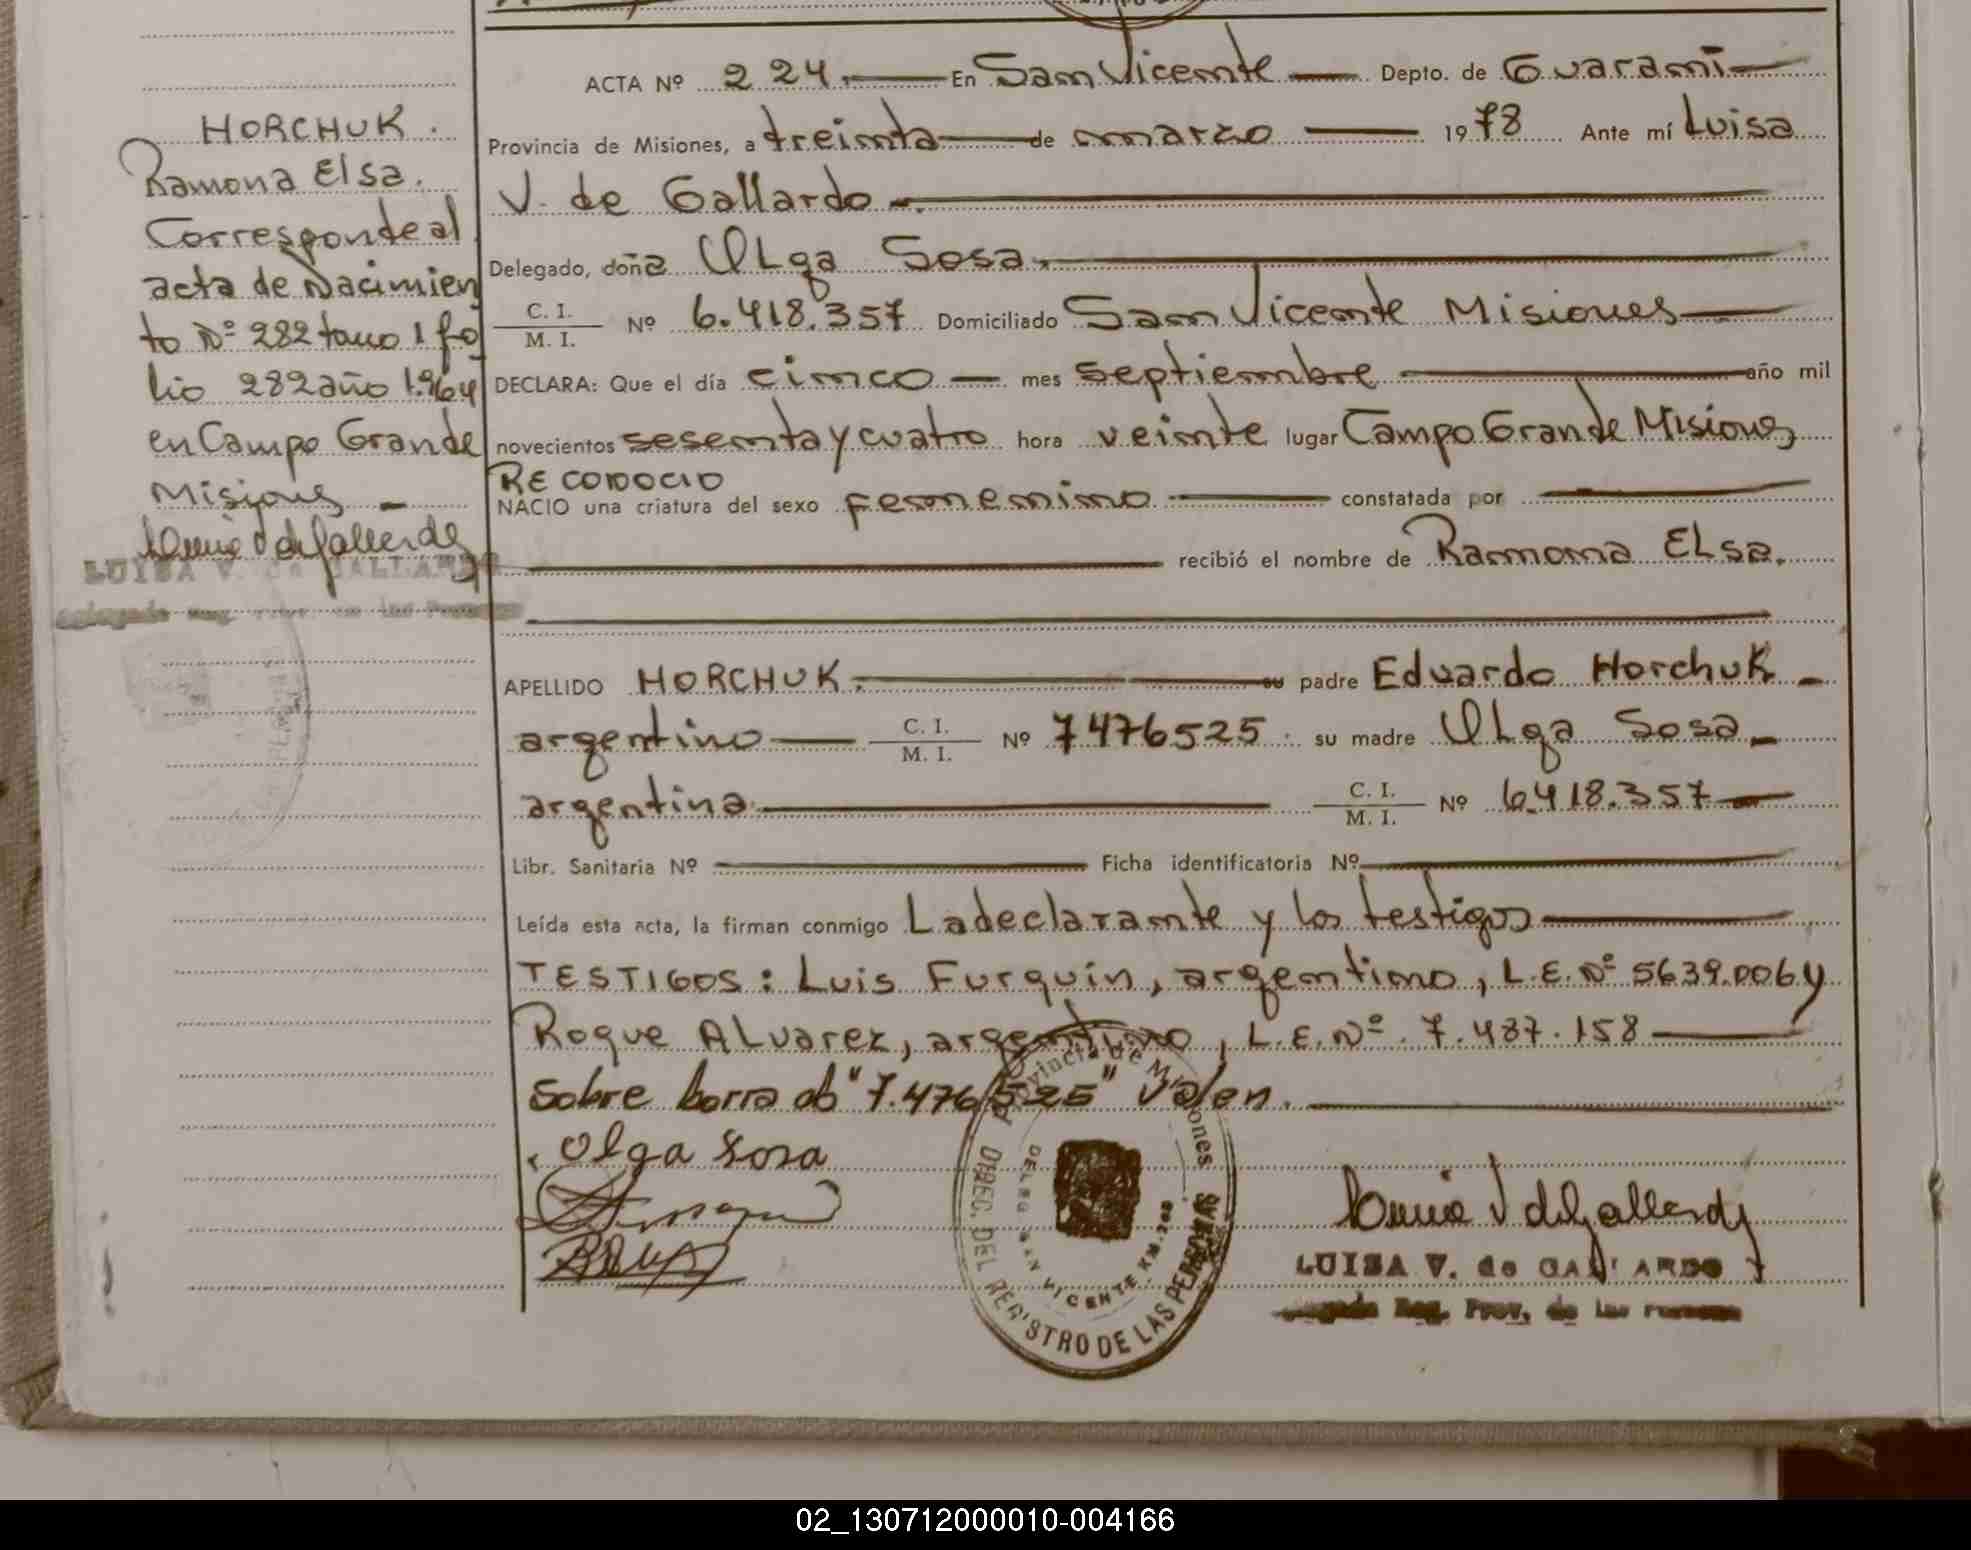 HORCHUK.
Ramona Elsa.
Corresponde al
acta de Nacimien
to Nº 282 tomo 1 fo
lio 282 año 1.964
en Campo Grande
Misiones
LUISA V. de GALLARDO
ACTA Nº 224. En San Vicente Depto. de Guaraní
Provincia de Misiones, a treinta de marzo 1978 Ante mí Luisa
V. de Gallardo.
Delegado, doña Olga Sosa.
C. I.
M. I. Nº 6.418.357 Domiciliado San Vicente Misiones
DECLARA: Que el día cinco mes septiembre año mil
novecientos sesenta y cuatro hora veinte lugar Campo Grande Misiones
RECONOCIO
NACIO una criatura del sexo femenino constatada por
recibió el nombre de Ramona ELsa.
APELLIDO HORCHUK. su padre Eduardo Horchuk
argentino C. I.
M. I. Nº 7476525 su madre OLga Sosa
argentina C. I.
M. I. Nº 6418.357
Libr. Sanitaria Nº Ficha identificatoria Nº
Leída esta acta, la firman conmigo La declarante y los testigos
TESTIGOS: Luis Furquin, argentino, L.E. Nº 5639.006 y
Roque ALvarez, argentino, L.E. Nº. 7.487.158
Sobre borrado "7.476.525" Valen.
Olga Sosa
Provincia de Misiones
DIREC. DEL REGISTRO DE LAS PERSONAS
DELEG. SAN VICENTE KM. 268
LUISA V. de GALLARDO
Reg. Prov. de las Personas
02_130712000010-004166